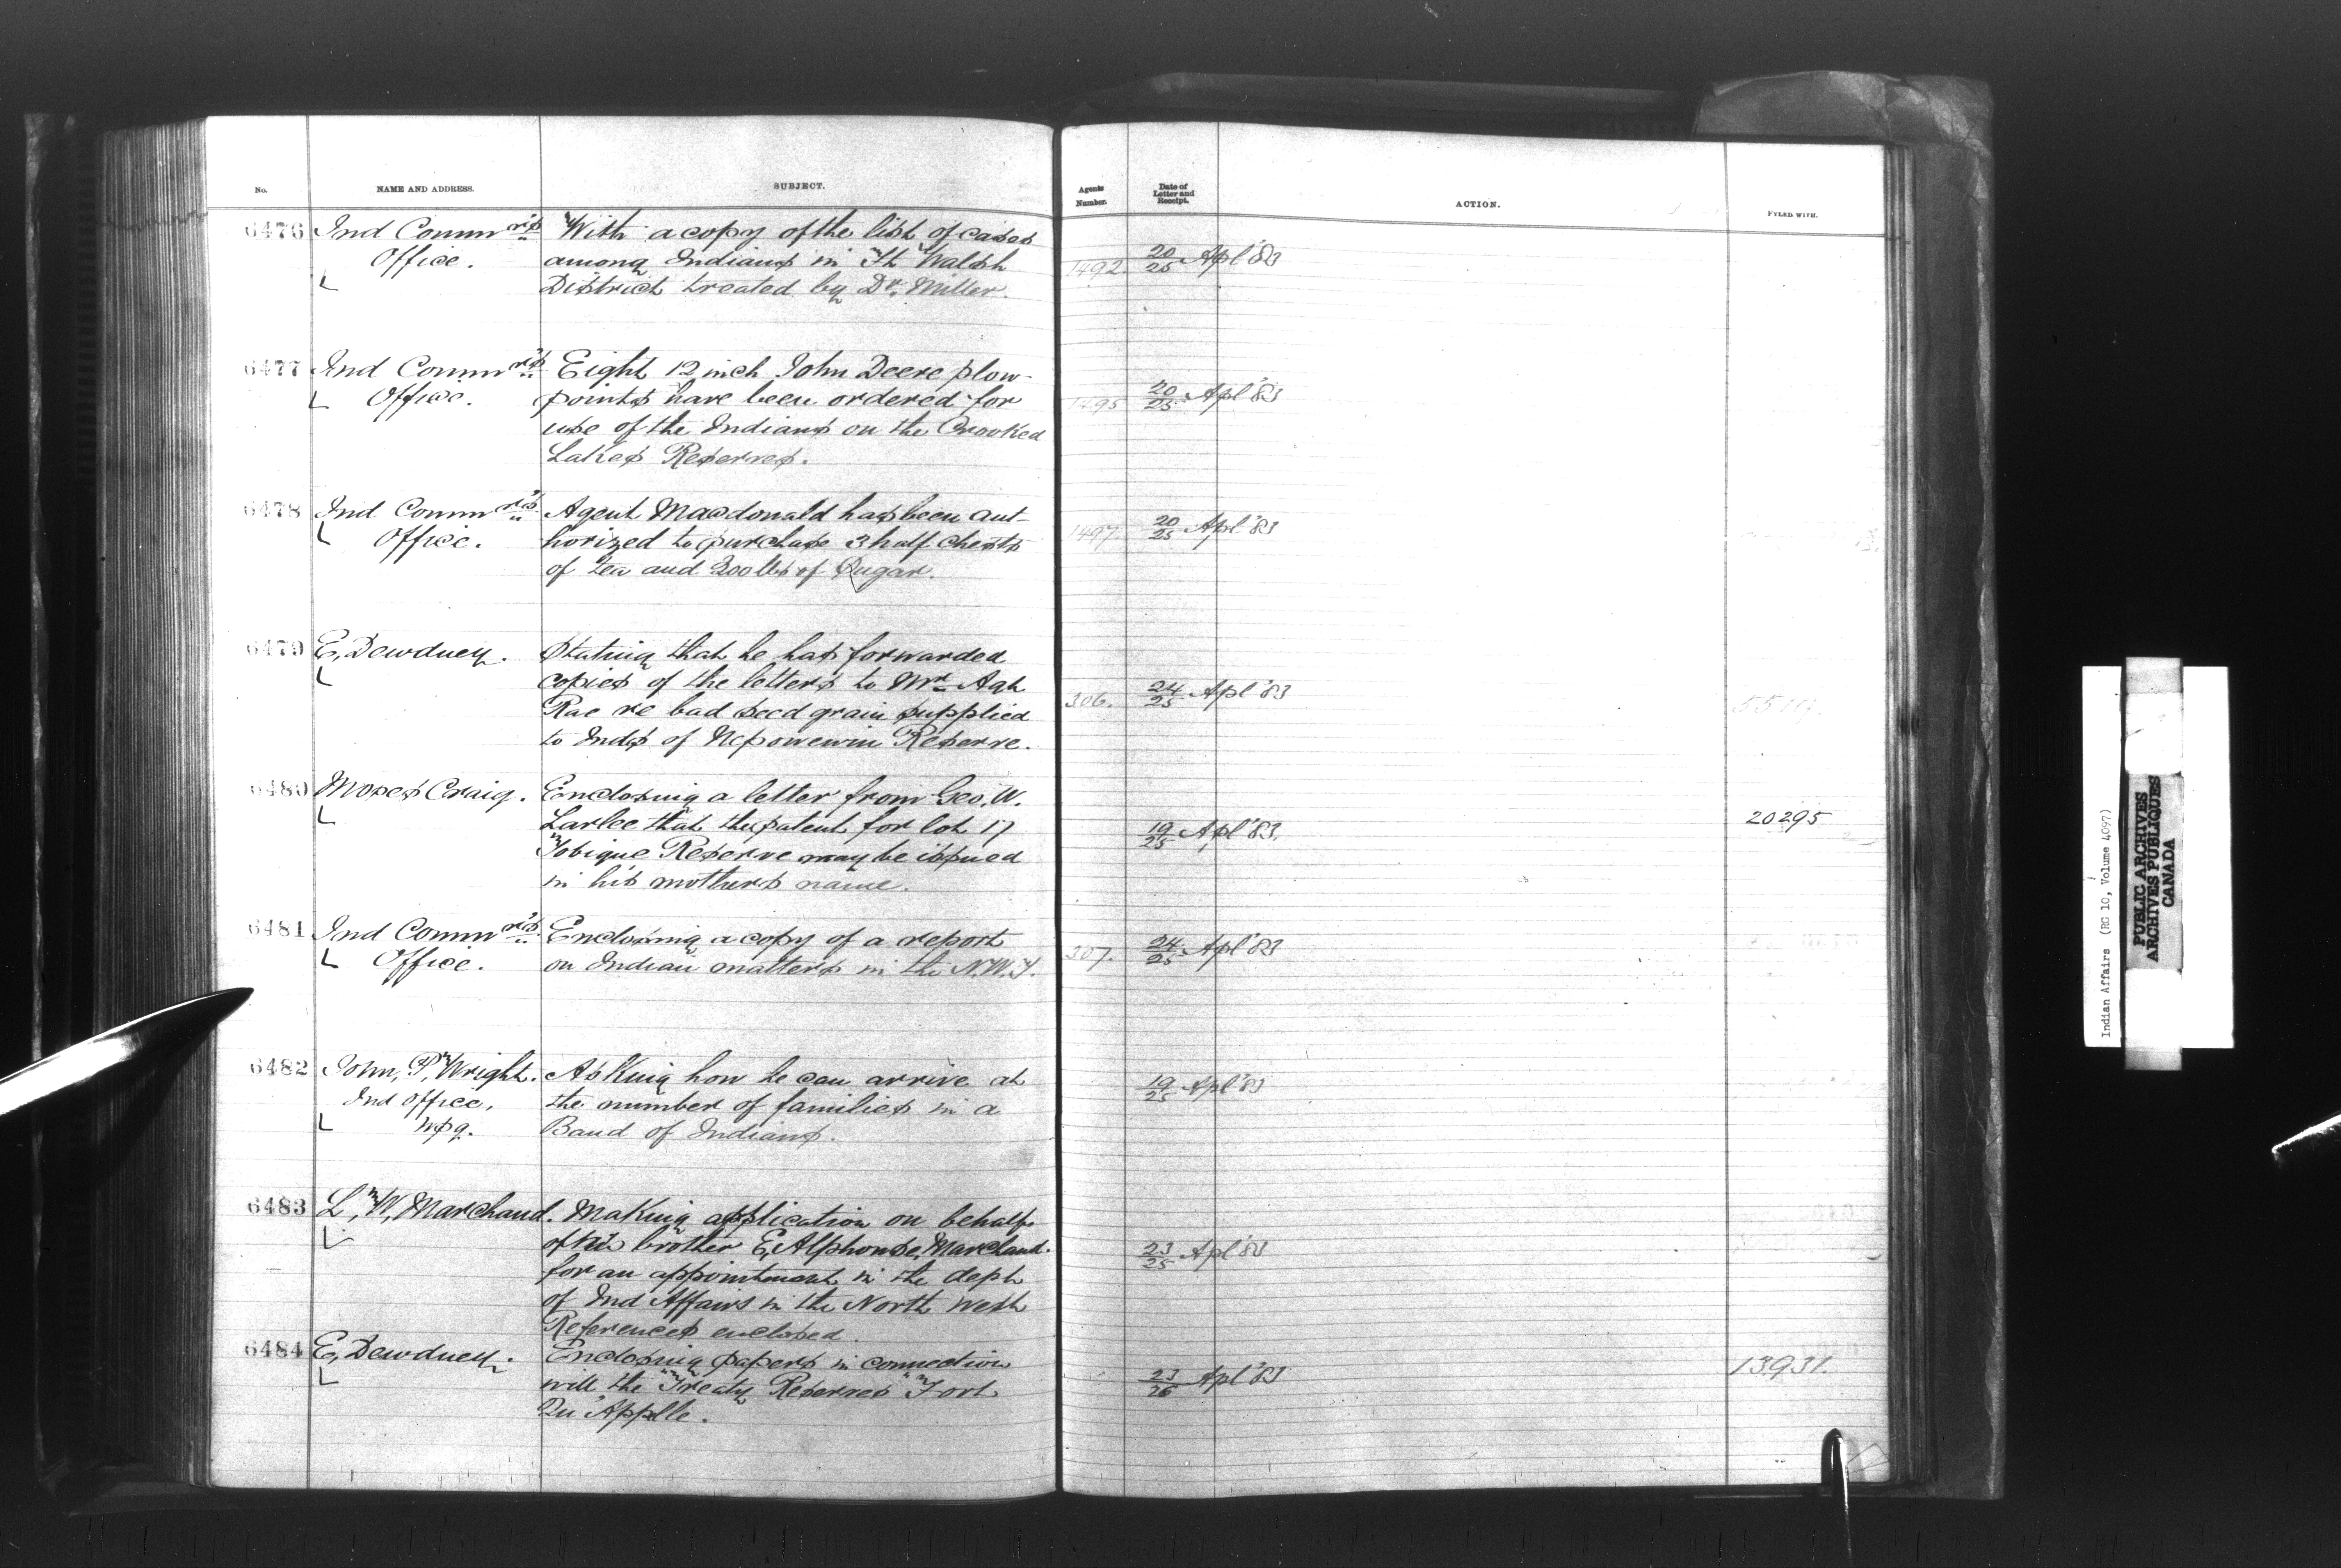 No. NAME AND ADDRESS. SUBJECT. Agents Number. Date of Letter and Receipt. ACTION. FYLED WITH.
6476 Ind Commr's With a copy of the list of cases
Office. among Indians in Ft Walsh 1492. 20/25 Apl '83
District treated by Dr. Miller.
6477 Ind Commr's Eight 12 inch John Deere plow-
Office. points have been ordered for 1495 20/25 Apl '83
use of the Indians on the Crooked
Lakes Reserves.
6478 Ind Commr's Agent Macdonald has been aut-
Office. horized to purchase 3 half chests 1497 20/25 Apl '83
of tea and 200 lbs of Sugar.
6479 E, Dewdney. Stating that he has forwarded
copies of the letters to Mr Agt 306. 24/25 Apl '83
Rae re bad seed grain supplied
to Inds of Nepowewin Reserve.
6480 Moses Craig. Enclosing a letter from Geo. W. 20295
Larlee that the patent for lot 17 19/25 Apl '83.
Tobique Reserve may be issued
in his mothers name.
6481 Ind Commr's Enclosing a copy of a report
Office. on Indian matters in the N.W.T. 307. 24/25 Apl '83
6482 John, P, Wright. Asking how he can arrive at 19/25 Apl '83
Ind Office, the number of families in a
Wpg. Band of Indians.
6483 L, W, Marchand. Making application on behalf
of his brother E, Alphonse, Marchand. 23/25 Apl '83
for an appointment in the dept
of Ind Affairs in the North West
References enclosed.
6484 E, Dewdney. Enclosing papers in connection 13931.
with the "Treaty Reserves" Fort 23/26 Apl '83
Qu'Applle.
Indian Affairs (RG 10, Volume 4097)
PUBLIC ARCHIVES
ARCHIVES PUBLIQUES
CANADA